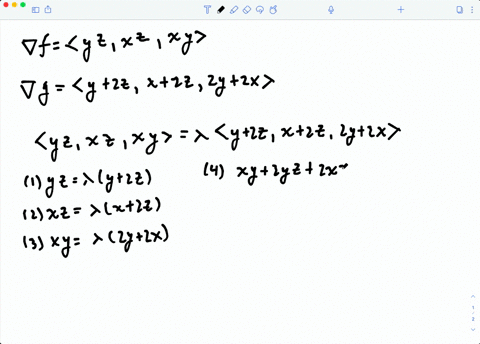 ∇f = <yz, xz, xy>
∇g = <y+2z, x+2z, 2y+2x>
<yz, xz, xy> = λ <y+2z, x+2z, 2y+2x>
(1) yz = λ(y+2z)
(4) xy + 2yz + 2x
(2) xz = λ(x+2z)
(3) xy = λ(2y+2x)